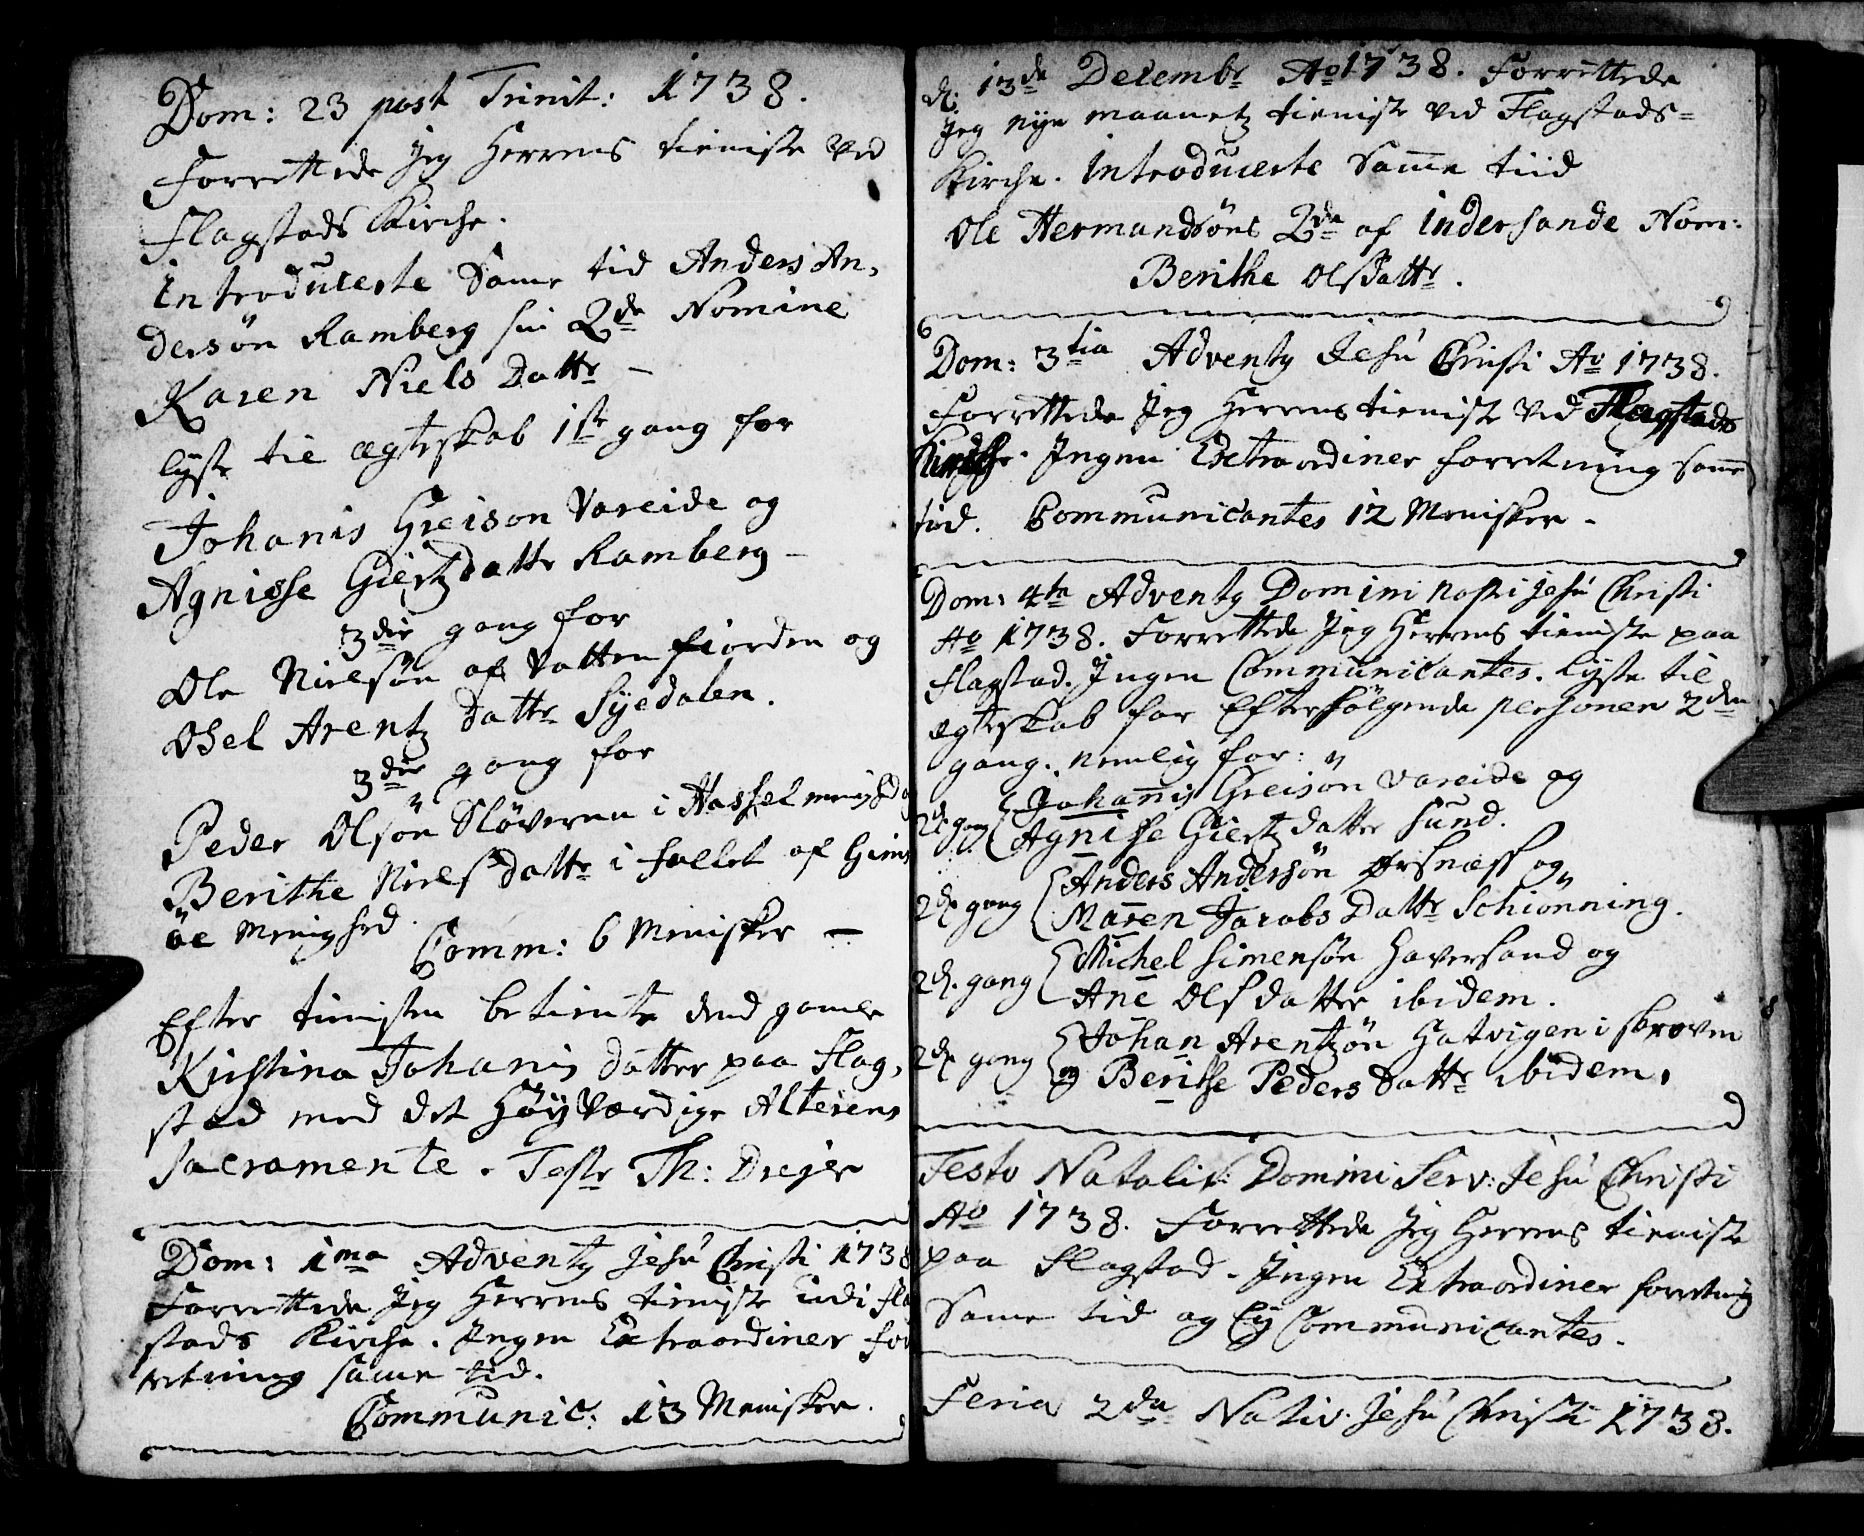 Dom: 23 post Trinit: 1738.
Forrettede Jeg Herrens tieniste ved
Flagstads Kirche.
Introducerte Same tid Anders An,
dersøn Ramberg sin 2de Nomine
Karen Niels Dattr –
lyste til ægteskab 1ste gang for
Johanis Greison Vareide og
Agnisse Giertz dattr Ramberg –
3die gang for
Ole Nielsøn af Vatten fiorden og
Osel Arentz dattr Syedalen.
3die gang for
Peder Olsön Sløveren i Hassel menighed og
Berithe Niels Dattr i fallet af Gims
öe Menighed.
Comm: 6 Menisker –
Efter tienisten betiente dend gamle
Kirstina Johanis datter paa Flag,
stad med det Høyværdige Alterens
Sacramente. Teste Th: Dreyer
Dom: 1ma Adventg Jesu Christi 1738
Forrettede Jeg Herrens tieniste udi Flag
stads Kirche. Ingen Extraordiner for
retning same tid.
Communic: 13 Menisker.
d. 13de Decembr Ao 1738. Forrettede
Jeg nye maanetz tieniste ved Flagstads=
Kirche. Introducerte Same tiid
Ole Hermandsöns 2de af Indersande Nom:
Berithe Olsdattr.
Dom: 3tia Adventg Jesu Christi Ao 1738.
Forrettede Jeg Herrens tieniste ved Flagstads
Kirche. Ingen Extraordiner forretning same
tid. Communicantes 12 Menisker.
Dom: 4ta Adventg Domini nostri Jesu Christi
Ao 1738. Forrettede Jeg Herrens tieniste paa
Flagstad. Ingen Communicantes. lyste til
egteskab for Efterfølgende personer 2den
gang. nemlig for:
2d. gang { Johanis Greisön Vareide og
Agnisse Giertz datter Sund.
2d. gang { Anders Andersön Ørsnæss og
Maren Jacobs Dattr Schiönning.
2d. gang { Michel Simensøn Haversand og
Ane Ols datter ibidem.
2d. gang { Johan Arentzön Hatvigen i skroven
og Berithe Peders Dattr ibidem.
Festo Natalit: Domini Serv: Jesu Christi
Ao 1738. Forrettede Jeg Herrens tieniste
paa Flagstad. Ingen Extraordiner forretning
Same tid og Ey Communicantes.
Feria 2da Nativ. Jesu Christi 1738.